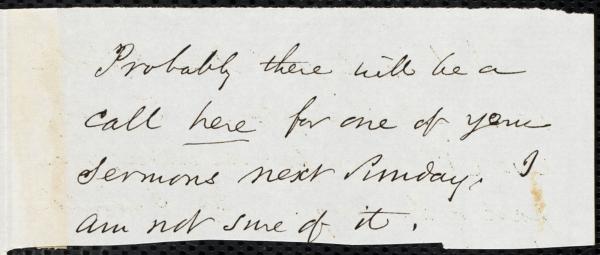 Probably there will be a
call here for one of your
sermons next Sunday. I
am not sure of it.